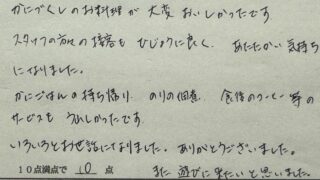 かにづくしのお料理が大変おいしかったです
スタッフの方々の接客もひじょうに良く、あたたかい気持ち
になりました。
かにごはんの持ち帰り、のりの佃煮、食後のコーヒー等の
サービスもうれしかったです。
いろいろとお世話になりました。ありがとうございました。
10点満点で 10 点
また遊びに来たいと思いました。